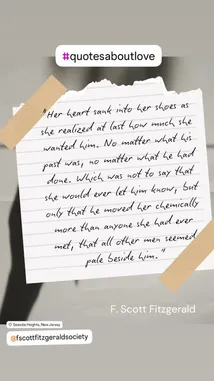 #quotesaboutlove
"Her heart sank into her shoes as
she realized at last how much she
wanted him. No matter what his
past was, no matter what he had
done. Which was not to say that
she would ever let him know, but
only that he moved her chemically
more than anyone she had ever
met, that all other men seemed
pale beside him."
F. Scott Fitzgerald
Seaside Heights, New Jersey
@fscottfitzgeraldsociety